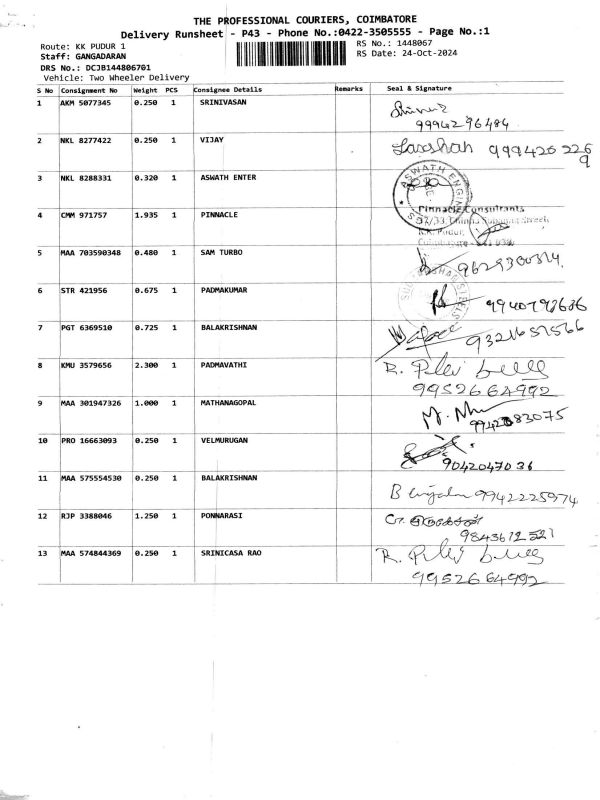 THE PROFESSIONAL COURIERS, COIMBATORE
Delivery Runsheet - P43 - Phone No.:0422-3505555 - Page No.:1
Route: KK PUDUR 1
RS No.: 1448067
Staff: GANGADARAN
RS Date: 24-Oct-2024
DRS No.: DCJB144806701
Vehicle: Two Wheeler Delivery
S No Consignment No Weight PCS Consignee Details Remarks Seal & Signature
1 AKM 5077345 0.250 1 SRINIVASAN
9994296484
2 NKL 8277422 0.250 1 VIJAY
3 NKL 8288331 0.320 1 ASWATH ENTER
ASWATH
4 CMM 971757 1.935 1 PINNACLE
Pinnacle Consultants
5 MAA 703590348 0.480 1 SAM TURBO
6 STR 421956 0.675 1 PADMAKUMAR
7 PGT 6369510 0.725 1 BALAKRISHNAN
8 KMU 3579656 2.300 1 PADMAVATHI
9952664992
9 MAA 301947326 1.000 1 MATHANAGOPAL
10 PRO 16663093 0.250 1 VELMURUGAN
9042047036
11 MAA 575554530 0.250 1 BALAKRISHNAN
9942225974
12 RJP 3388046 1.250 1 PONNARASI
13 MAA 574844369 0.250 1 SRINICASA RAO
9952664992